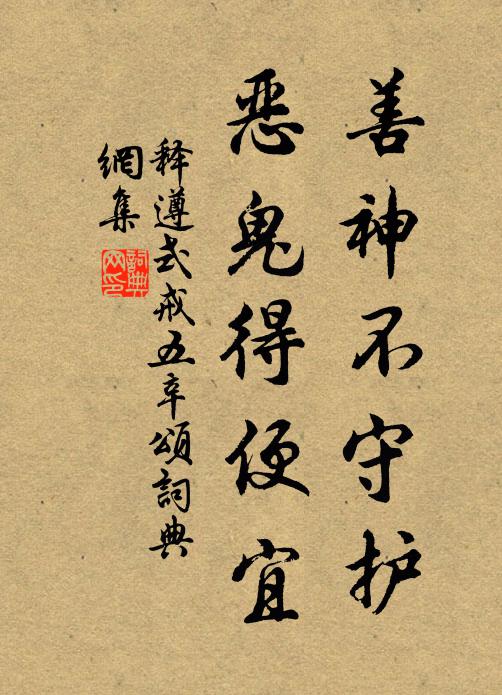 善神不守护
恶鬼得便宜
释遵式戒五辛頌詞典
網集
詞典
网印